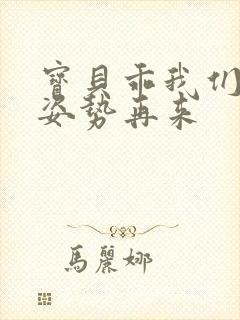 寶貝乖我们
姿势再来
馬麗娜